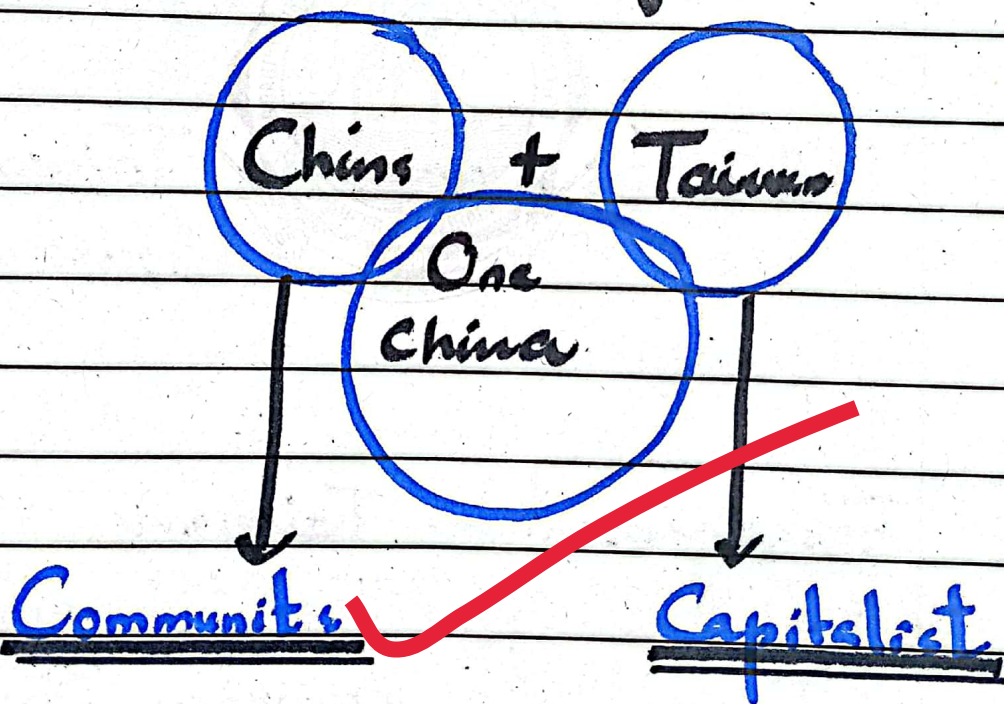 China + Taiwan
One
China
Communits Capitalist